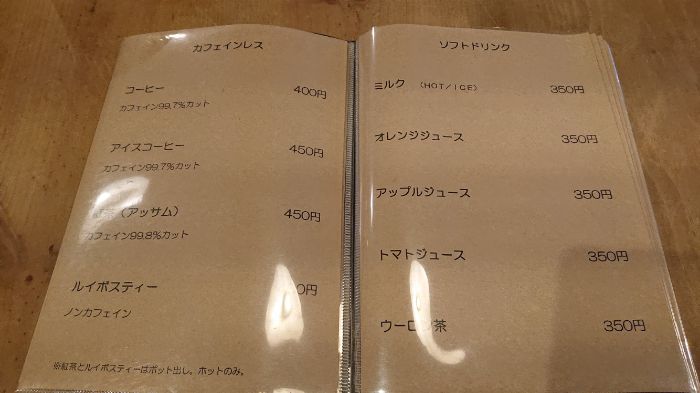 カフェインレス
コーヒー 400円
カフェイン99.7%カット
アイスコーヒー 450円
カフェイン99.7%カット
（アッサム） 450円
カフェイン99.8%カット
ルイボスティー 0円
ノンカフェイン
※紅茶とルイボスティーはポット出し。ホットのみ。
ソフトドリンク
ミルク （HOT／ICE） 350円
オレンジジュース 350円
アップルジュース 350円
トマトジュース 350円
ウーロン茶 350円